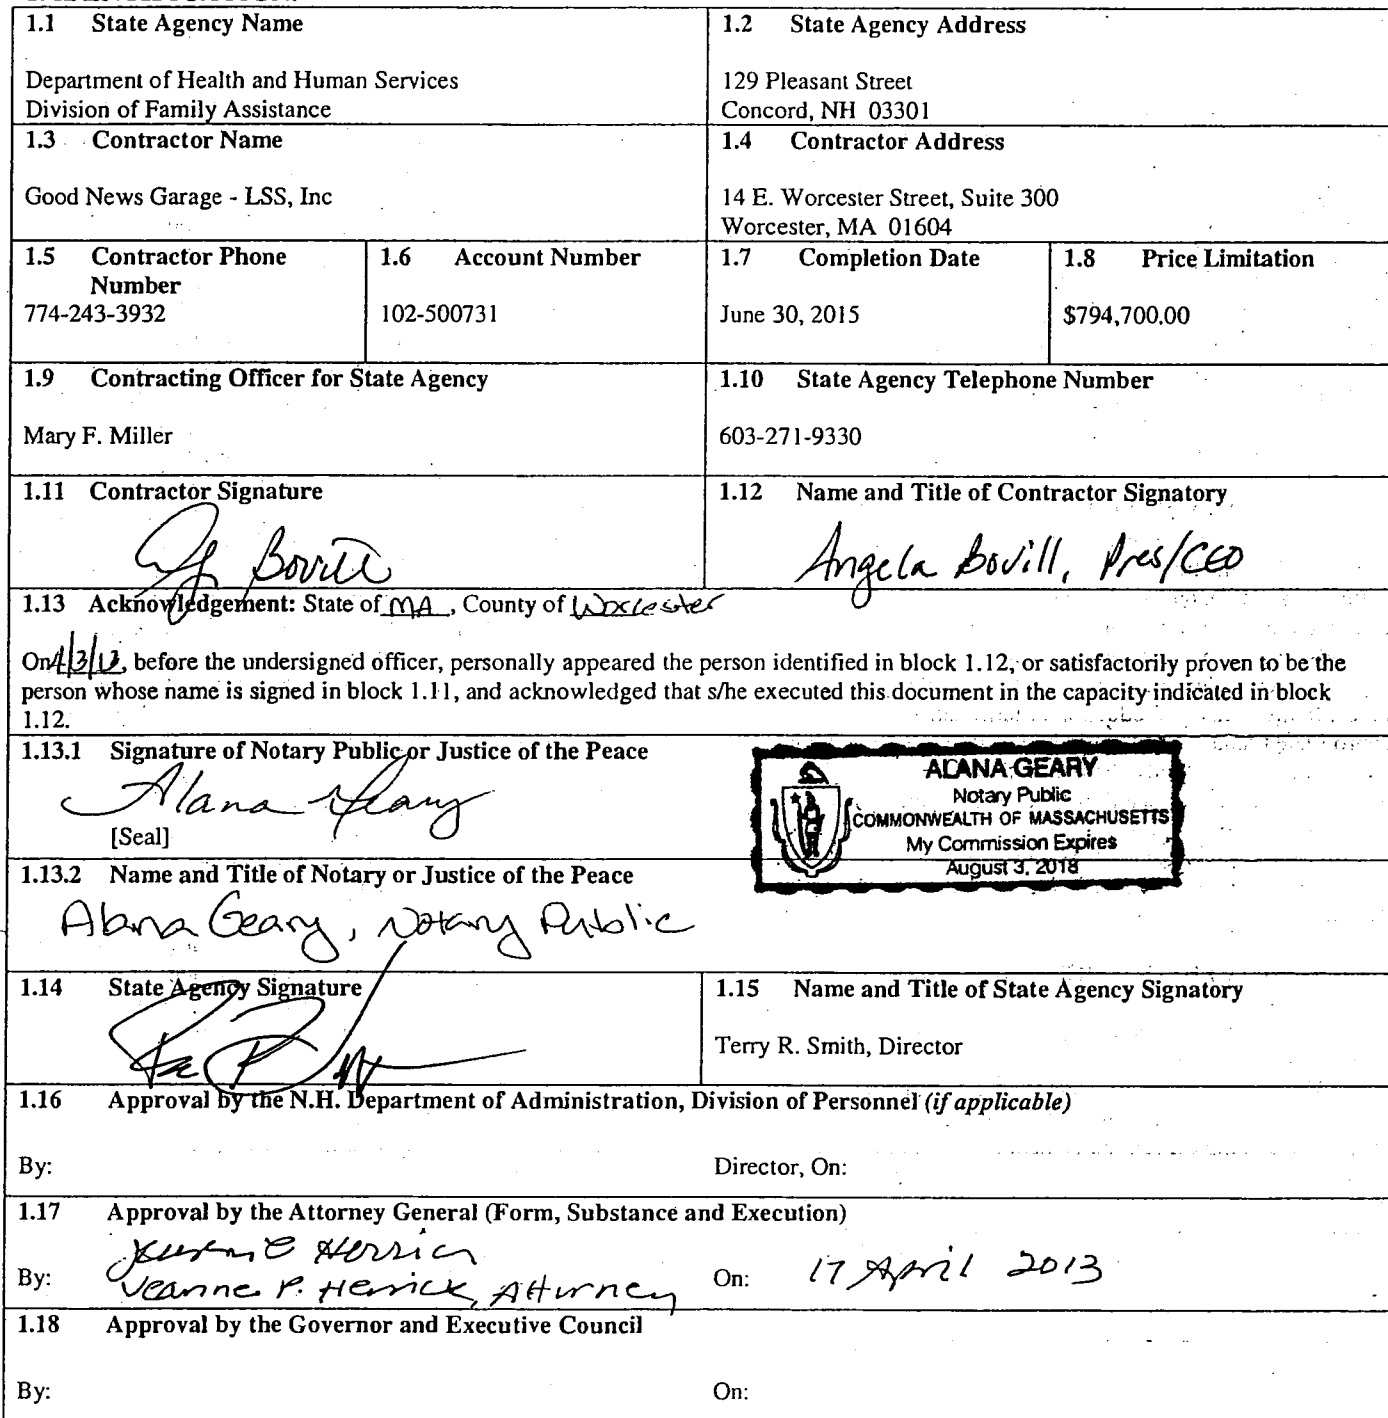 1.1 State Agency Name
Department of Health and Human Services
Division of Family Assistance
1.2 State Agency Address
129 Pleasant Street
Concord, NH 03301
1.3 Contractor Name
Good News Garage - LSS, Inc
1.4 Contractor Address
14 E. Worcester Street, Suite 300
Worcester, MA 01604
1.5 Contractor Phone
Number
774-243-3932
1.6 Account Number
102-500731
1.7 Completion Date
June 30, 2015
1.8 Price Limitation
$794,700.00
1.9 Contracting Officer for State Agency
Mary F. Miller
1.10 State Agency Telephone Number
603-271-9330
1.11 Contractor Signature
Bovill
1.12 Name and Title of Contractor Signatory
Angela Bovill, Pres/CEO
1.13 Acknowledgement: State of MA, County of Worcester
On 4/3/13, before the undersigned officer, personally appeared the person identified in block 1.12, or satisfactorily proven to be the
person whose name is signed in block 1.11, and acknowledged that s/he executed this document in the capacity indicated in block
1.12.
1.13.1 Signature of Notary Public or Justice of the Peace
Alana Geary
[Seal]
ALANA GEARY
Notary Public
COMMONWEALTH OF MASSACHUSETTS
My Commission Expires
August 3, 2018
1.13.2 Name and Title of Notary or Justice of the Peace
Alana Geary, Notary Public
1.14 State Agency Signature
1.15 Name and Title of State Agency Signatory
Terry R. Smith, Director
1.16 Approval by the N.H. Department of Administration, Division of Personnel (if applicable)
By:
Director, On:
1.17 Approval by the Attorney General (Form, Substance and Execution)
Herrick
By: Jeanne P. Herrick, Attorney
On: 17 April 2013
1.18 Approval by the Governor and Executive Council
By:
On: